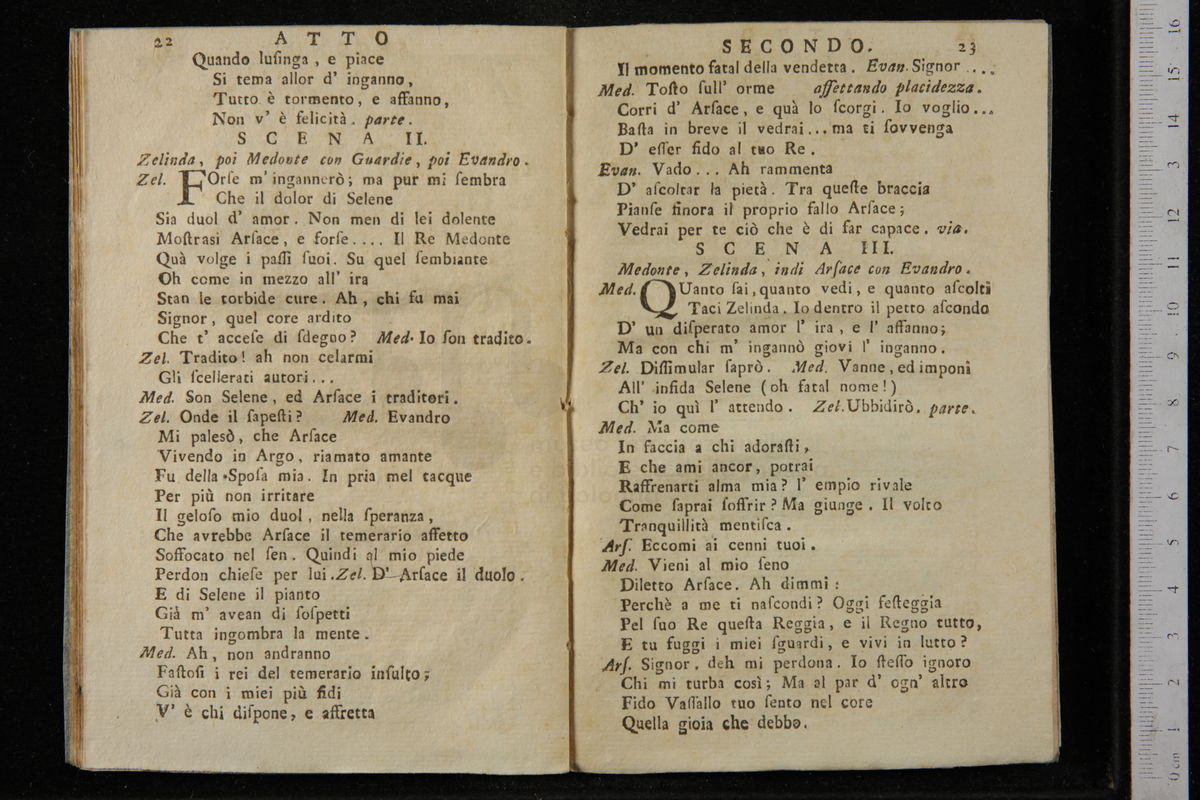 22 ATTO
Quando luſinga , e piace
Si tema allor d' inganno,
Tutto è tormento, e affanno,
Non v' è felicità. parte.
SCENA II.
Zelinda, poi Medonte con Guardie, poi Evandro.
Zel. FOrſe m' ingannerò; ma pur mi ſembra
Che il dolor di Selene
Sia duol d' amor. Non men di lei dolente
Moſtrasi Arſace, e forſe.... Il Re Medonte
Quà volge i paſſi ſuoi. Su quel ſembiante
Oh come in mezzo all' ira
Stan le torbide cure. Ah, chi fu mai
Signor, quel core ardito
Che t' acceſe di ſdegno? Med. Io ſon tradito.
Zel. Tradito! ah non celarmi
Gli ſcellerati autori...
Med. Son Selene, ed Arſace i traditori.
Zel. Onde il ſapeſti? Med. Evandro
Mi palesò, che Arſace
Vivendo in Argo, riamato amante
Fu della Spoſa mia. In pria mel tacque
Per più non irritare
Il geloſo mio duol, nella ſperanza,
Che avrebbe Arſace il temerario affetto
Soffocato nel ſen. Quindi al mio piede
Perdon chieſe per lui. Zel. D' Arſace il duolo.
E di Selene il pianto
Già m' avean di ſoſpetti
Tutta ingombra la mente.
Med. Ah, non andranno
Faſtoſi i rei del temerario inſulto;
Già con i miei più fidi
V' è chi diſpone, e affretta
SECONDO. 23
Il momento fatal della vendetta. Evan. Signor ....
Med. Toſto ſull' orme affettando placidezza.
Corri d' Arſace, e quà lo ſcorgi. Io voglio...
Baſta in breve il vedrai... ma ti ſovvenga
D' eſſer fido al tuo Re.
Evan. Vado... Ah rammenta
D' aſcoltar la pietà. Tra queſte braccia
Pianſe finora il proprio fallo Arſace;
Vedrai per te ciò che è di far capace. via.
SCENA III.
Medonte, Zelinda, indi Arſace con Evandro.
Med. QUanto ſai, quanto vedi, e quanto aſcolti
Taci Zelinda. Io dentro il petto aſcondo
D' un diſperato amor l' ira, e l' affanno;
Ma con chi m' ingannò giovi l' inganno.
Zel. Diſſimular ſaprò. Med. Vanne, ed imponi
All' infida Selene (oh fatal nome!)
Ch' io quì l' attendo. Zel. Ubbidirò. parte.
Med. Ma come
In faccia a chi adoraſti,
E che ami ancor, potrai
Raffrenarti alma mia? l' empio rivale
Come ſaprai ſoffrir? Ma giunge. Il volto
Tranquillità mentiſca.
Arſ. Eccomi ai cenni tuoi.
Med. Vieni al mio ſeno
Diletto Arſace. Ah dimmi:
Perchè a me ti naſcondi? Oggi feſteggia
Pel ſuo Re queſta Reggia, e il Regno tutto,
E tu fuggi i miei ſguardi, e vivi in lutto?
Arſ. Signor, deh mi perdona. Io ſteſſo ignoro
Chi mi turba così; Ma al par d' ogn' altro
Fido Vaſſallo tuo ſento nel core
Quella gioia che debbo.
0 cm 1 2 3 4 5 6 7 8 9 10 11 12 13 14 15 16